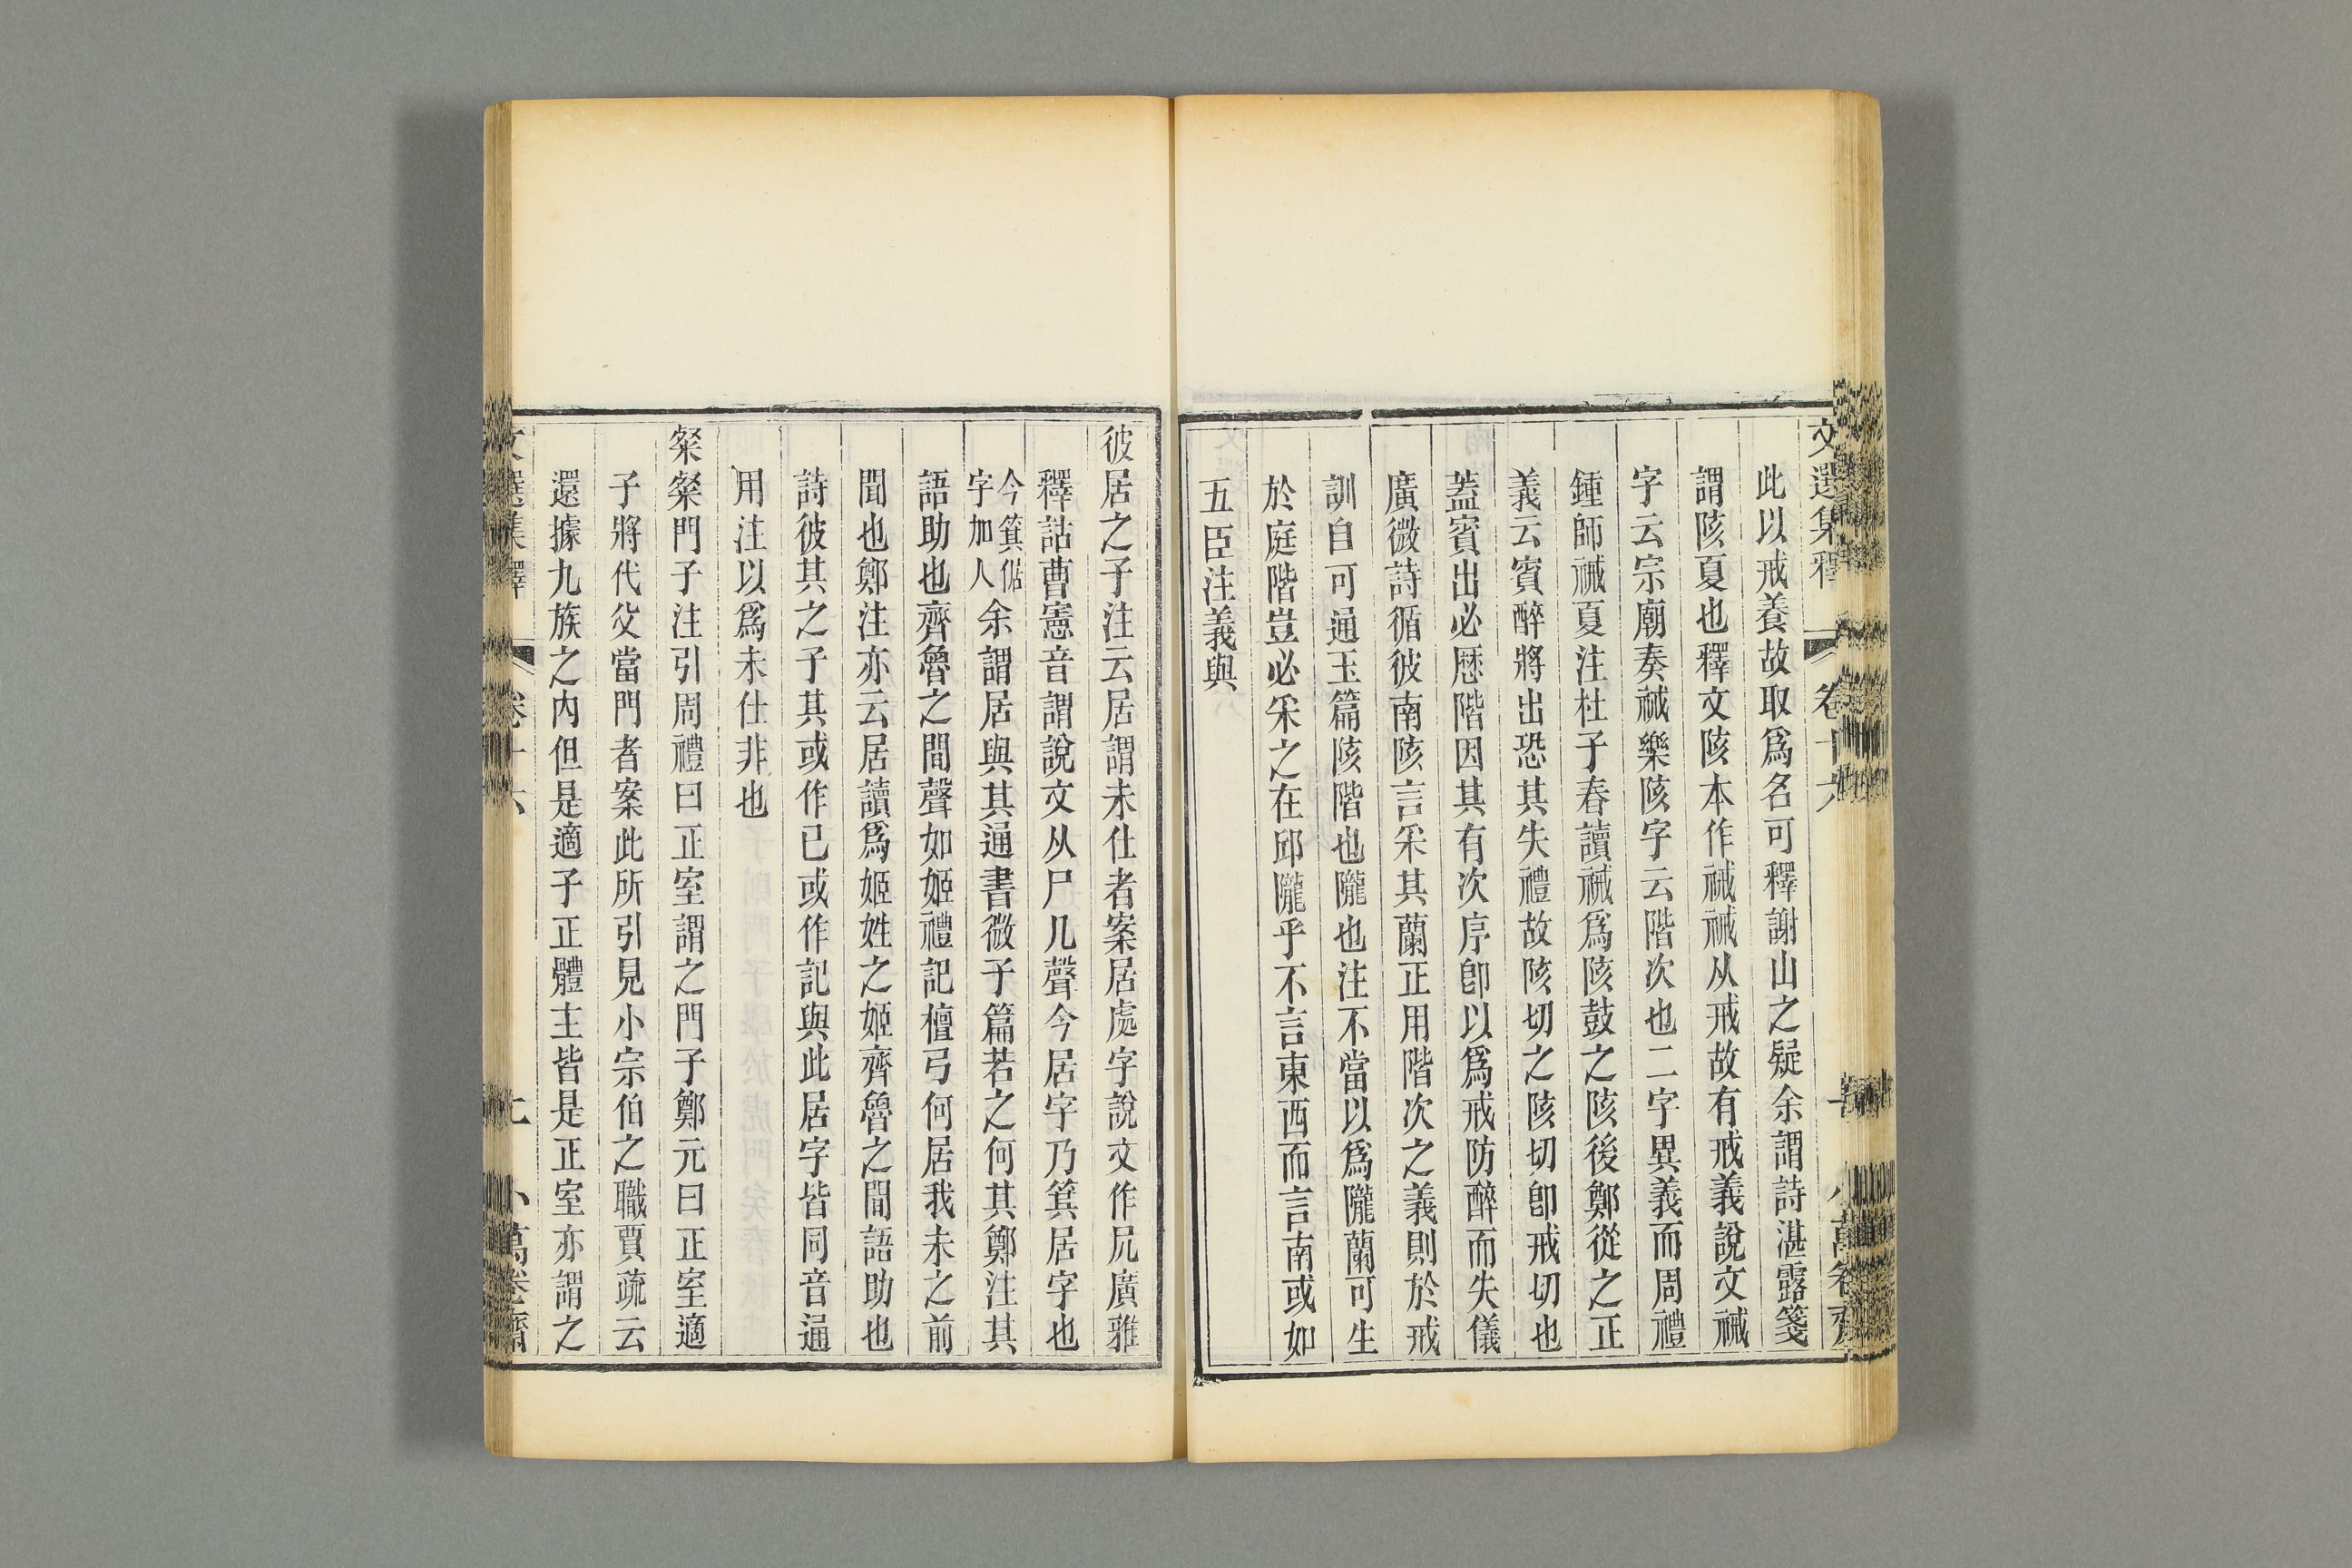 文選集釋 卷十六
此以戒養故取爲名可釋謝山之疑余謂詩湛露箋
謂陔夏也釋文陔本作祴祴从戒故有戒義說文祴
字云宗廟奏祴樂陔字云階次也二字異義而周禮
鍾師祴夏注杜子春讀祴爲陔鼓之陔後鄭從之正
義云賓醉將出恐其失禮故陔切之陔切卽戒切也
蓋賓出必歷階因其有次序卽以爲戒防醉而失儀
廣微詩循彼南陔言采其蘭正用階次之義則於戒
訓自可通玉篇陔階也隴也注不當以爲隴蘭可生
於庭階豈必采之在邱隴乎不言東西而言南或如
五臣注義與
彼居之子注云居謂未仕者案居處字說文作凥廣雅
釋詁曹憲音謂說文从尸几聲今居字乃箕居字也
今箕倨字加人余謂居與其通書微子篇若之何其鄭注其
語助也齊魯之間聲如姬禮記檀弓何居我未之前
聞也鄭注亦云居讀爲姬姓之姬齊魯之間語助也
詩彼其之子其或作已或作記與此居字皆同音通
用注以爲未仕非也
粲粲門子注引周禮曰正室謂之門子鄭元曰正室適
子將代父當門者案此所引見小宗伯之職賈疏云
還據九族之內但是適子正體主皆是正室亦謂之
文選集釋 卷十六 小萬卷齋